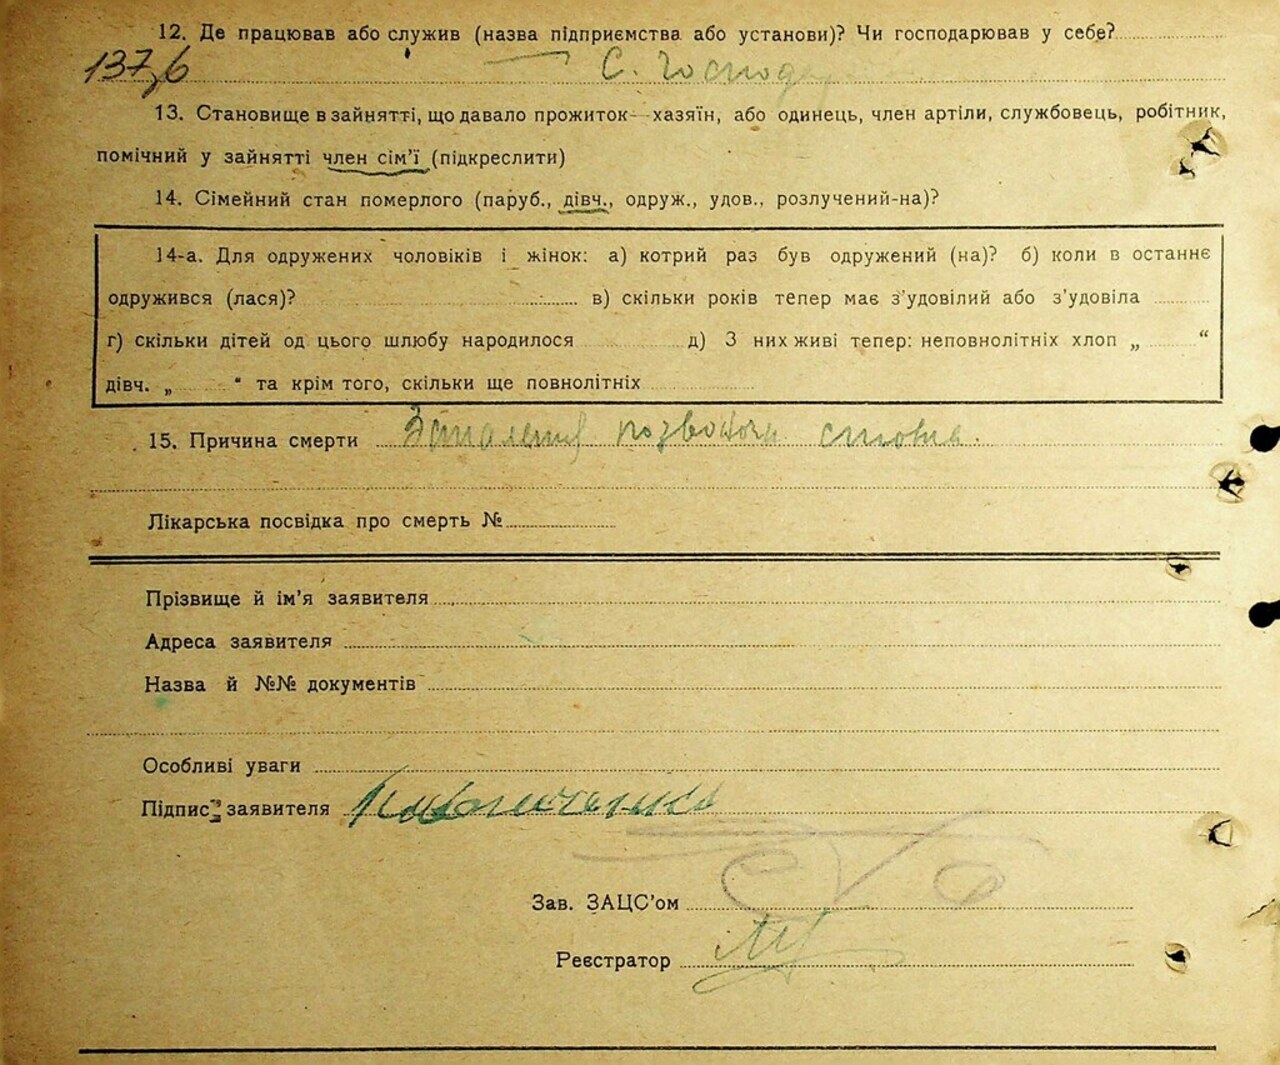 12. Де працював або служив (назва підприємства або установи)? Чи господарював у себе?
137,6 С. господ
13. Становище в зайнятті, що давало прожиток — хазяїн, або одинець, член артіли, службовець, робітник,
помічний у зайнятті член сім'ї (підкреслити)
14. Сімейний стан померлого (паруб., дівч., одруж., удов., розлучений-на)?
14-а. Для одружених чоловіків і жінок: а) котрий раз був одружений (на)? б) коли в останнє
одружився (лася)? в) скільки років тепер має з'удовілий або з'удовіла
г) скільки дітей од цього шлюбу народилося д) З них живі тепер: неповнолітніх хлоп „ “
дівч. „ “ та крім того, скільки ще повнолітніх
15. Причина смерти Запалення позвоноч стовпа.
Лікарська посвідка про смерть №
Прізвище й ім'я заявителя
Адреса заявителя
Назва й №№ документів
Особливі уваги
Підпис заявителя
Зав. ЗАЦС'ом
Реєстратор